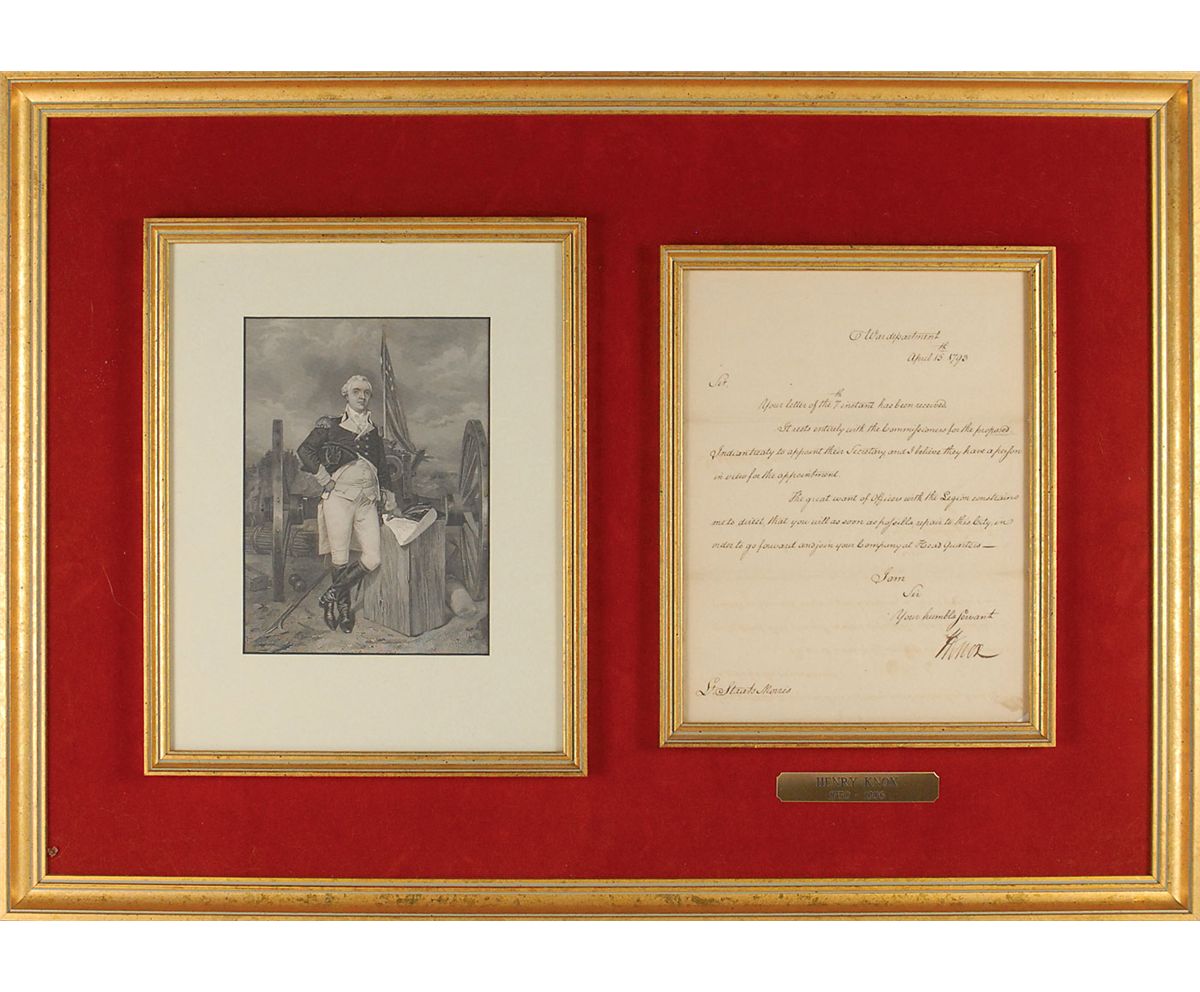 War department
April 15th 1793
Sir.
Your letter of the 7th instant has been received.
It rests entirely with the Commissioners for the proposed
Indian treaty to appoint their Secretary and I believe they have a person
in view for the appointment.
The great want of Officers with the Legion constrains
me to direct, that you will as soon as possible repair to this City, in
order to go forward and join your Company at Head Quarters—
I am
Sir
Your humble Servant
HKnox
Lt. Staats Morris
HENRY KNOX
1750 - 1806